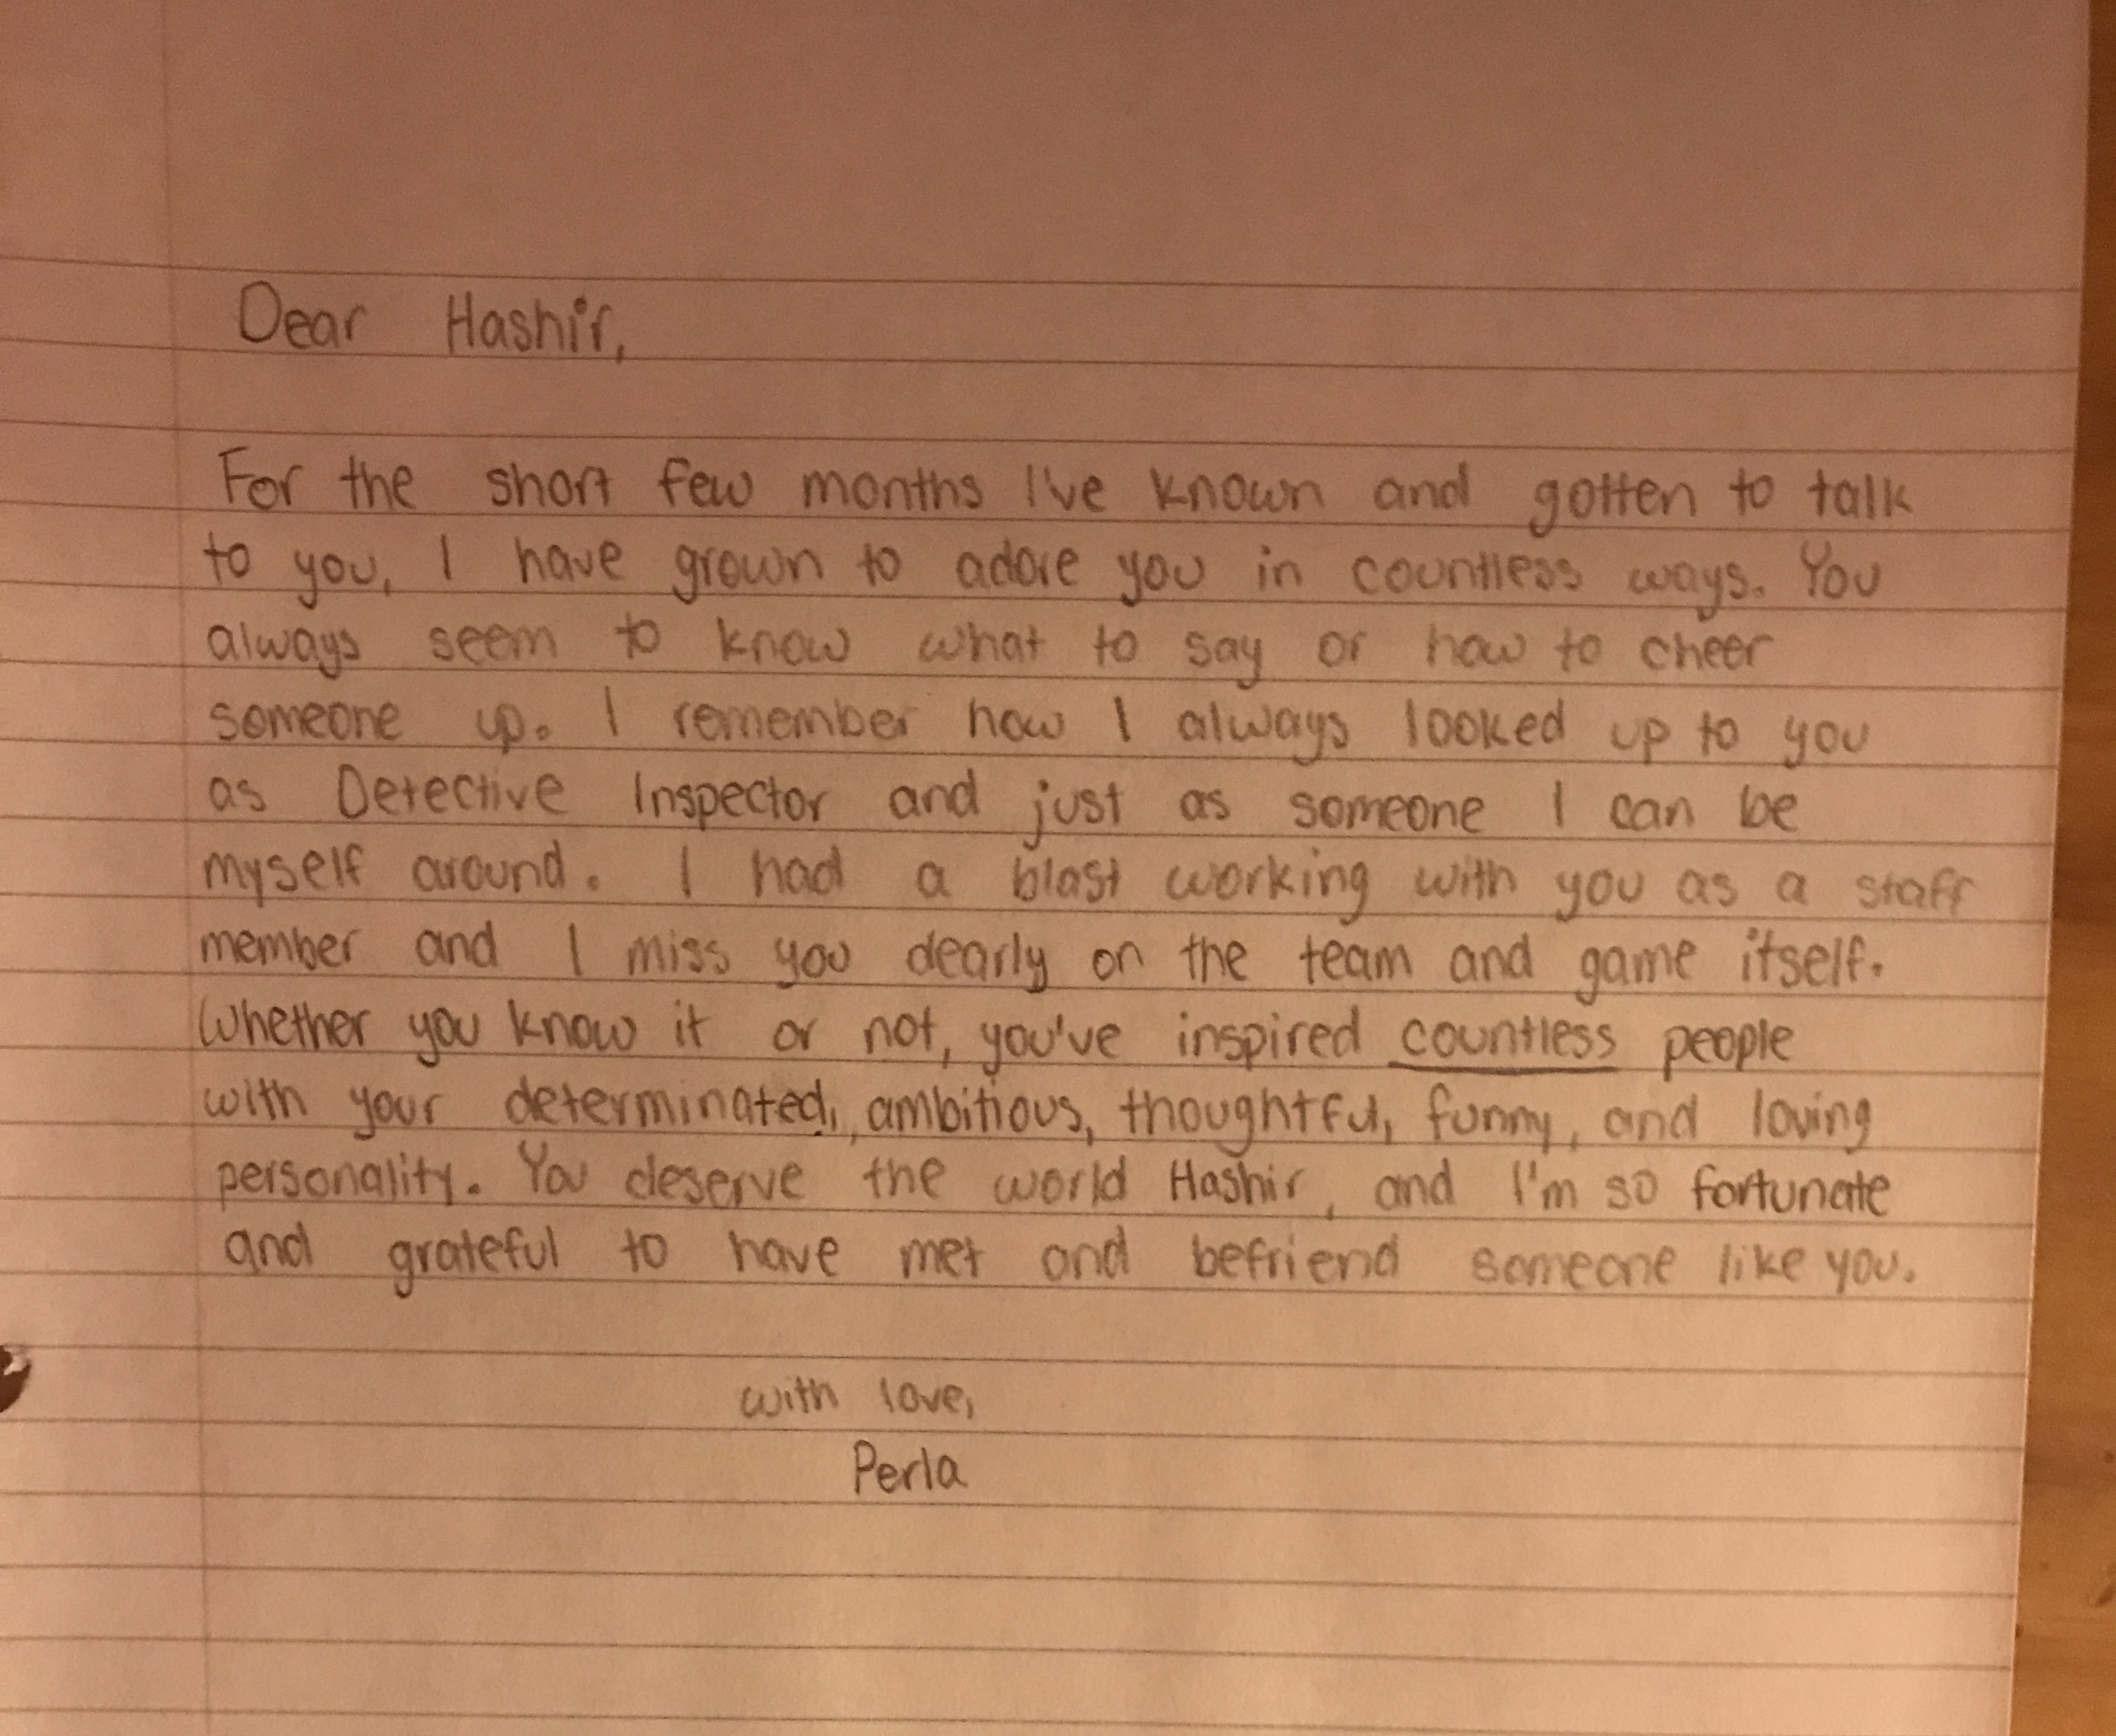 Dear Hashir,
For the short few months I've known and gotten to talk
to you, I have grown to adore you in countless ways. You
always seem to know what to say or how to cheer
someone up. I remember how I always looked up to you
as Detective Inspector and just as someone I can be
myself around. I had a blast working with you as a staff
member and I miss you dearly on the team and game itself.
Whether you know it or not, you've inspired countless people
with your determined, ambitious, thoughtful, funny, and loving
personality. You deserve the world Hashir, and I'm so fortunate
and grateful to have met and befriend someone like you.
with love,
Perla